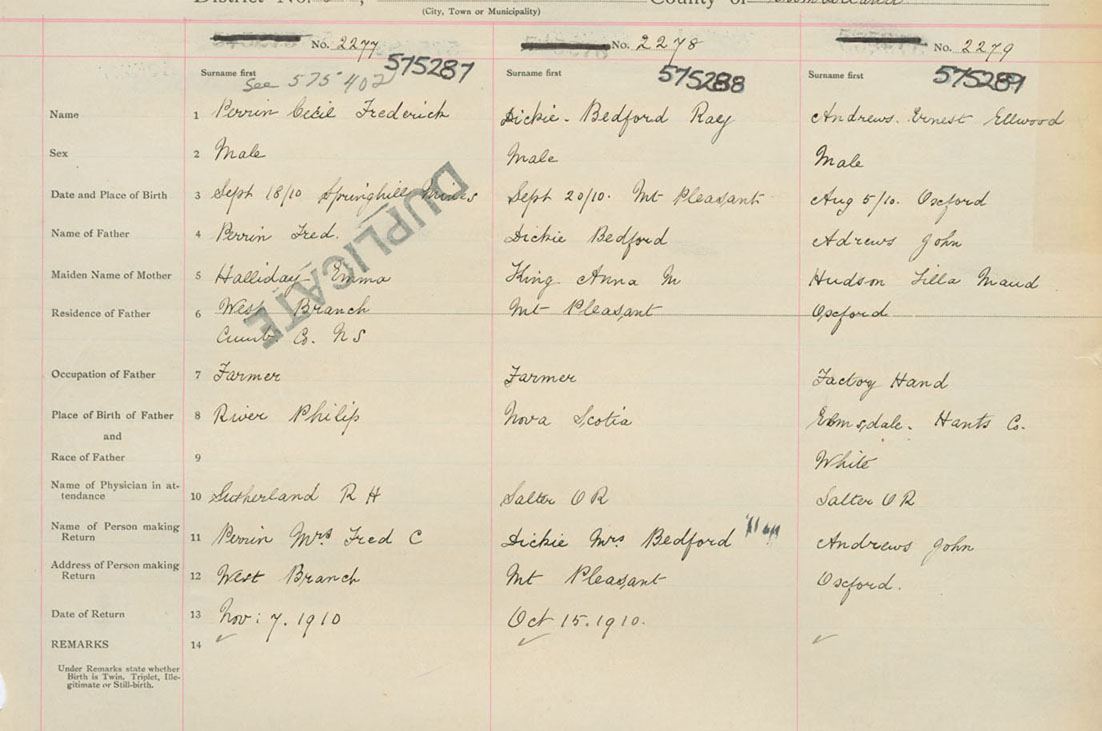 District No. County of Cumberland
(City, Town or Municipality)
No. 2277 No. 2278 No. 2279
Surname first 575287 Surname first 575288 Surname first 575289
See 575402
Name 1 Perrin Cecil Frederick Dickie - Bedford Ray Andrews. Ernest Ellwood
Sex 2 Male Male Male
Date and Place of Birth 3 Sept 18/10 Springhill Mines Sept 20/10. Mt Pleasant Aug 5/10. Oxford
DUPLICATE
Name of Father 4 Perrin Fred. Dickie Bedford Adrews John
Maiden Name of Mother 5 Halliday - Emma King Anna M Hudson Lilla Maud
Residence of Father 6 West Branch Mt Pleasant Oxford
Cumb. Co. N S
Occupation of Father 7 Farmer Farmer Factory Hand
Place of Birth of Father 8 River Philip Nova Scotia Elmsdale. Hants Co.
and
Race of Father 9 White
Name of Physician in at-
tendance 10 Sutherland R H Salter O R Salter O R
Name of Person making
Return 11 Perrin Mrs Fred C Dickie Mrs Bedford Andrews John
Address of Person making
Return 12 West Branch Mt Pleasant Oxford.
Date of Return 13 Nov: 7. 1910 Oct 15. 1910.
REMARKS 14
Under Remarks state whether
Birth is Twin, Triplet, Ille-
gitimate or Still-birth.